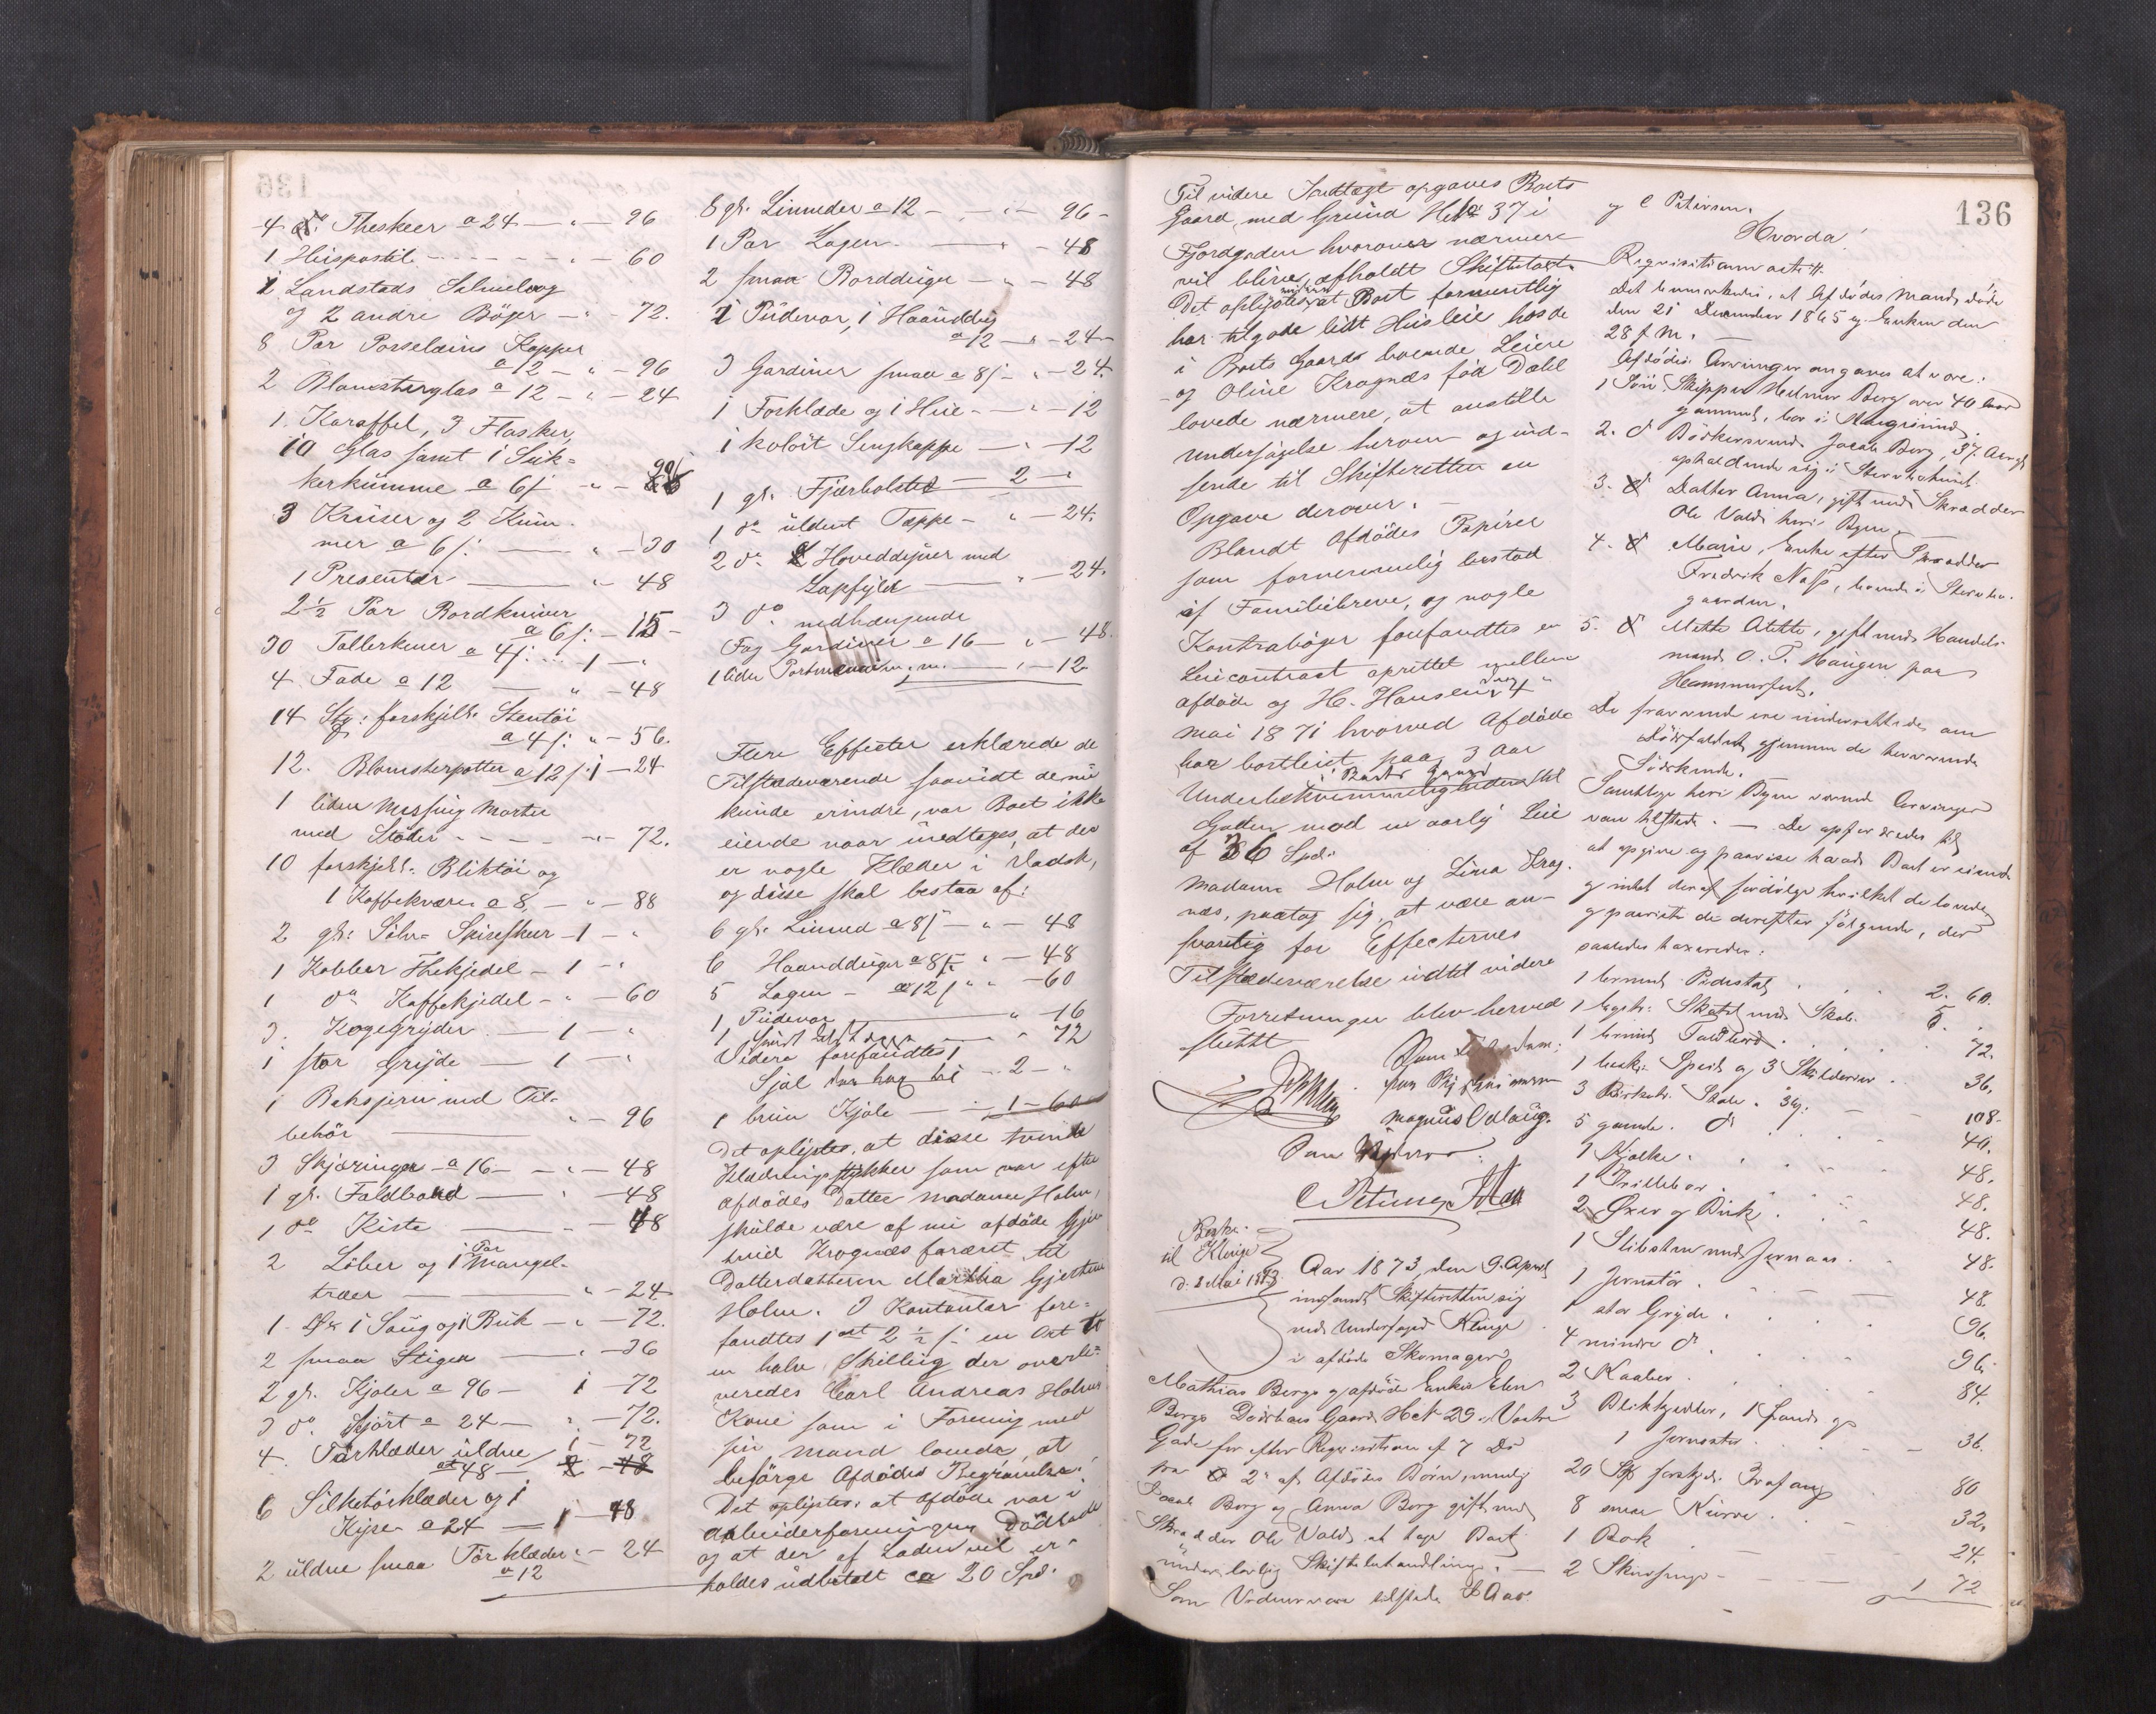 4 do Theskeer a 24 — " — 96
1 Huspostil - - - - " — 60
1 Landstads Salmebog
og 2 andre Bøger — " - 72.
8 Par Porselæins Kopper
a 12 — " — 96
2 Blomsterglas a 12 — " — 24
1. Karaffel, 3 Flasker,
10 Glas samt 1 Suk-
kerkumme a 6 ſ — " —
3 Kruser og 2 Kum-
mer a 6 ſ: — " — 30
1 Presenter — " — 48
2½ Par Bordkniver
a 6 ſ: — 15 -
30 Tallerkener a 4 ſ: .. 1 — "
4 Fade a 12 — " — 48
14 Stk: forskjell: Stentøi
a 4 ſ: " — 56.
12. Blomsterpotter a 12 ſ: 1 — 24
1 liden Messing Morter
med Støder - - - - " — 72.
10 forskjell: Bliktøi og
1 Kaffekværn a 8 — " — 88
2 gl: Sølv- Spiseskeer — 1 — "
1 Kobber Thekjedel — 1 — "
1 do Kaffekjedel — " — 60
3. Kogegryder — 1 — "
1 stor Gryde — 1 — "
1 Bakejern med Til-
behør — " — 96
3 Skjæringer — a 16 — " — 48
1 gl. Foldbord — " — 48
1 do Kiste — " — 48
2 Løber og 1 Par Mangel-
træer — " — 24
1. Øx 1 Saug og 1 Buk — " — 72.
2 smaa Stiger — " — 36
2 gl. Kjoler a 96 — 1 — 72
3 do Skjört a 24 — " — 72.
4. Törklæder uldne 1 — 72
a 48 — 2 — 48
6 Silketörklæder og 1
Kyse a 24 — 1 — 48
2 uldne smaa Törklæder " — 24
a 12
8 gl. Linneder a 12 — " — 96 -
1 Par Lagen — " — 48
2 smaa Borddúge — " — 48
1 Pudevar, 1 Haanddug
a 12 — " — 24
3 Gardiner smaa a 8 ſ — " — 24.
1 Forklæde og 1 Hue — " — 12
1 kulört Sengkappe — " — 12
1 gl. Fjærbolster — 2 — "
1 do uldent Tæppe — " — 24.
2 do Hoveddyner med
Lapfyld — " — 24.
3 do nedhængende
Fag Gardiner a 16 — " — 48.
1 liden Portmonai m. m. — " — 12
Flere Effecter erklærede de
Tilstedeværende saavidt de nu
kunde erindre, var Boet ikke
eiende naar undtages, at der
er nogle Klæder i Vadsk,
og disse skal bestaa af:
6 gl. Linned a 8 ſ — " — 48
6 Haanddúger a 8 ſ " — 48
5 Lagen — a 12 ſ " — 60
1 Pudevar — " — 16
1 — " 72
Videre forefandtes 1
Sjal — 2 — "
1 brun Kjole — 1 — 60
Det oplystes, at disse tvende
Klædningsstykker som var efter
afdødes Datter Madame Holm,
skulde være af nu afdøde Gjer
trud Krognæs foræret til
Datterdatteren Martha Gjertine
Holm. I Kontanter fore-
fandtes 1 ort 2½ ſ: en Ort to
en halv Skilling der overle-
veredes Carl Andreas Holms
Kone som i Forening med
sin Mand lovede at
besørge Afdødes Begravelse.
Det oplystes, at Afdøde var i
Arbeiderforeningens Dødslade
og at der af Laden vil er-
holdes udbetalt ca 20 Spd.
136
Til videre Indtægt opgaves Boets
Gaard, med Grund No 37 i
Fjordgaden hvorover nærmere
vil blive afholdt Skiftetaxt.
Det oplystes at Boet formentlig
har tilgode lidt Husleie hos de
i Boets Gaard boende Leiere
- og Oline Krognæs fød Dahl
lovede nærmere, at anstille
Undersøgelse herom og ind-
sende til Skifteretten en
Opgave derover. —
Blandt Afdødes Papirer
som fornemmelig bestod
af Familiebreve, og nogle
Kontrabøger forefandtes en
Leiecontract oprettet mellem
afdøde og H. Hansen 4
Mai 1871 hvorved Afdøde
har bortleiet paa 3 Aar
i Boets Gaard
Underbekvemmeligheden til
Gaden mod en aarlig Leie
af 36 Spd.
Madame Holm og Lina Krog-
næs, paatog sig, at være an-
svarlig for Effecternes
Tilstedeværelse indtil videre
Forretningen blev herved
sluttet
Magnus Odlaug.
C Petersen
Berke
til Klinge
d. 2 Mai 1873
Aar 1873, den 9. April
indfandt Skifteretten sig
ved Underfoged Klinge
i afdøde Skomager
Mathias Bergs og afdøde Enkes Elen
Bergs Dødsbos Gaard No 29 i Vestre
Gade for efter Requisition af 7 Ds
fra 2de af Afdødes Børn, nemlig
Jacob Berg og Anna Berg gift med
Skrædder Ole Vold at tage Boet
under lovlig Skiftebehandling. —
Som Vidner var tilstede Aas
og C Petersen.
Hvorda!
Requisitionen acter 4.
Det bemærkedes, at Afdødes Mand døde
den 21 December 1865 og Enken den
28 f. M. —
Afdødes Arvinger angaves at være:
1 Søn Skipper Hedmun Berg over 40 Aar
gammel, bor i
2. do Bødkersvend Jacob Berg, 37 Aar gl
opholdende sig i
3. Datter Anna, gift med Skrædder
Ole Vold heri Byen
4. Marie, Enke efter Skrædder
Fredrik Næss, boende i
gaarden.
5. Mette Alette, gift med Handels-
mand O. T. Haugen paa
Hammerfest.
De fraværende ere underrettede om
Dødsfaldet gjennem de herværende
Søskende.
Samtlige heri Byen værende Arvinger
var tilstede. — De opfordredes til
at opgive og paavise hvad Boet er eiende
og intet deraf fordølge hvilket de lovede
og paaviste de derefter følgende, der
saaledes taxeredes:
1 brunet Pidestal . . . 2. 60.
1 Skatol med Skab. 5. "
1 brunet Foldbord . . . 72.
1 Speil og 3 Skilderier . 36.
3 Birketr. Stole a 36. — 108.
5 gamle do . . . 40.
1 Kjelke . . . 48.
1 Trillebør . . . 48.
2 Øxer og Buk . . 48.
1 Slibesten med Jernaas . 48.
1 Jernstör . . . 48.
1 stor Gryde . . . 96.
4 mindre do . . . 96.
2 Kaaber . . . 84.
3 Blikkjedler, 1 Pande og
1 Jernrøster . . — 36.
20 Stk forskj. . . 80
8 smaa Kurve . . — 32.
1 Bok . . — 24.
2 — — 1 72